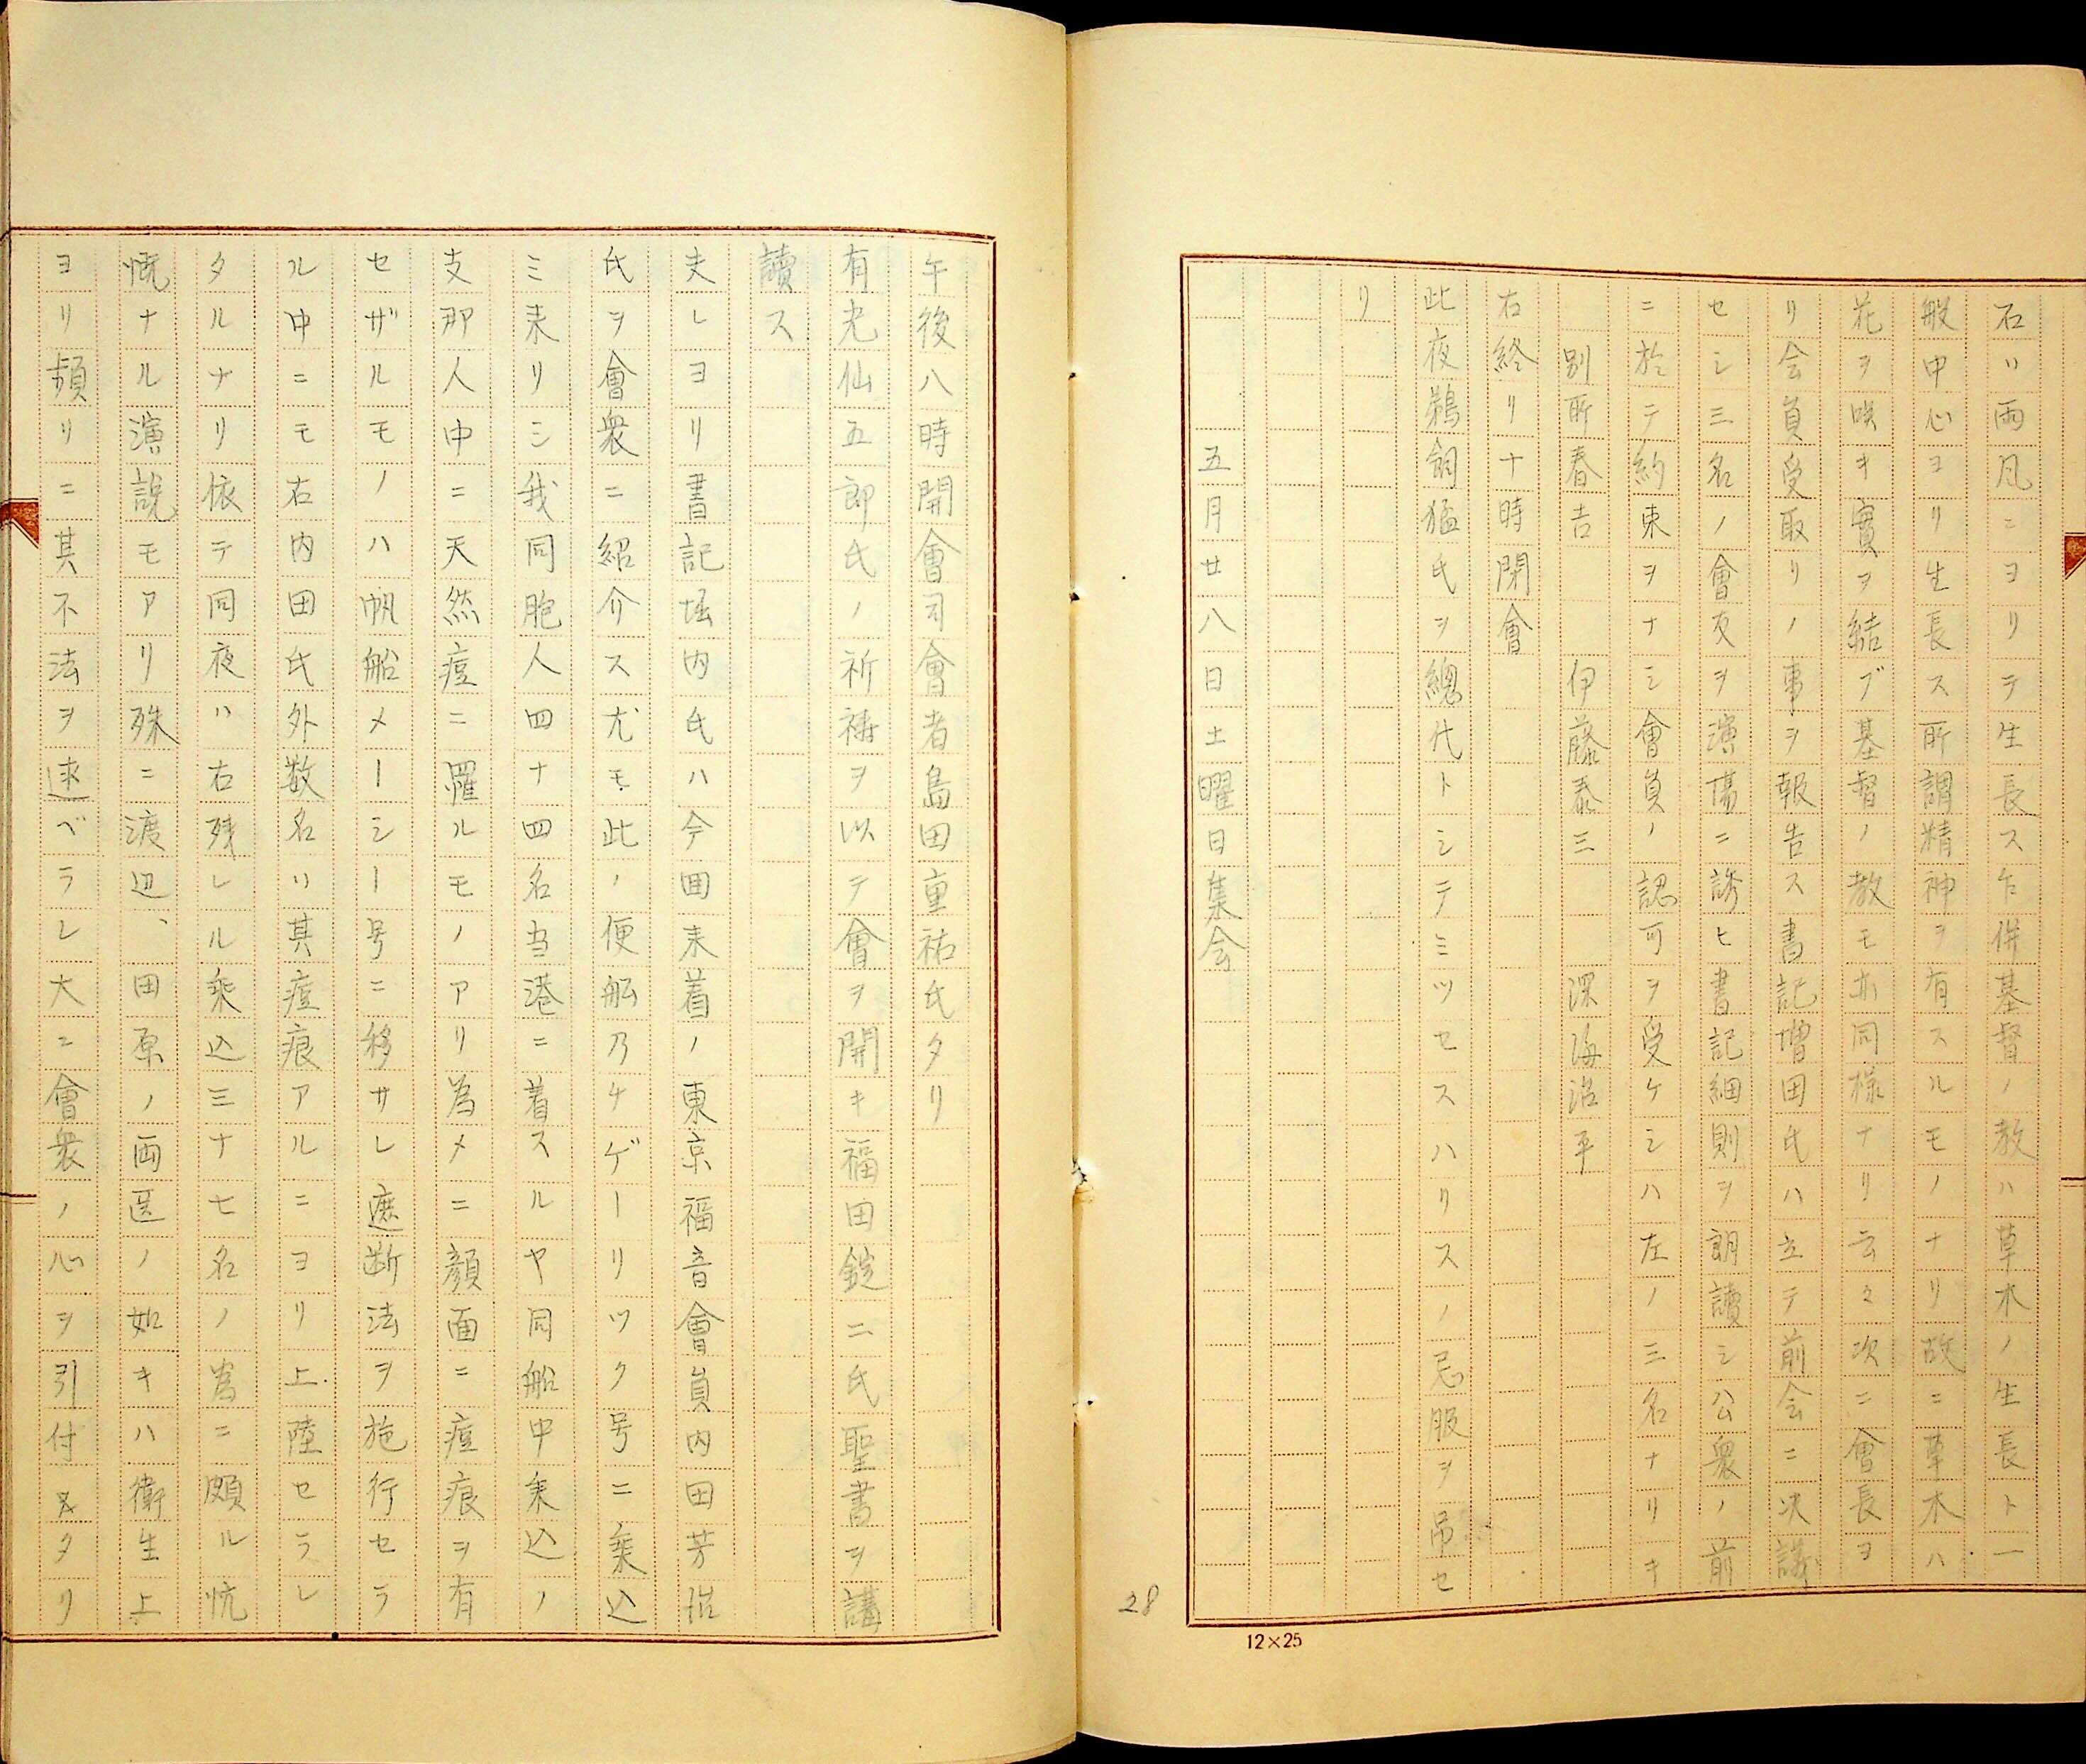 石ハ雨風ニヨリテ生長ス乍併基督ノ教ハ草木ノ生長ト一
般中心ヨリ生長ス所謂精神ヲ有スルモノナリ故ニ草木ハ
花ヲ咲キ實ヲ結ブ基督ノ教モ亦同様ナリ云々次ニ會長ヨ
リ会員受取リノ事ヲ報告ス書記増田氏ハ立テ前会ニ决議
セシ三名ノ會友ヲ演場ニ誘ヒ書記細則ヲ朗讀シ公衆ノ前
ニ於テ約束ヲナシ會員ノ認可ヲ受ケシハ左ノ三名ナリキ
別所春吉 伊藤泰三 深海治平
右終リ十時閉會
此夜鵜飼猛氏ヲ總代トシテミツセスハリスノ忌服ヲ吊セ
リ
五月廿八日土曜日集会
28
12×25
午後八時開會司會者島田重祐氏タリ
有光仙五郎氏ノ祈祷ヲ以テ會ヲ開キ福田錠二氏聖書ヲ講
讀ス
夫レヨリ書記堀内氏ハ今囬来着ノ東京福音會員内田芳
氏ヲ會衆ニ紹介ス尤モ此ノ便舩乃チゲーリツク号ニ乗込
ミ来リシ我同胞人四十四名当港ニ着スルヤ同船中乗込ノ
支那人中ニ天然痘ニ罹ルモノアリ為メニ顔面ニ痘痕ヲ有
セザルモノハ帆船メーシー号ニ移サレ遮断法ヲ施行セラ
ル中ニモ右内田氏外数名ハ其痘痕アルニヨリ上陸セラレ
タルナリ依テ同夜ハ右残レル乗込三十七名ノ為ニ頗ル忼
慨ナル演説モアリ殊ニ渡辺、田原ノ両医ノ如キハ衛生上
ヨリ頻リニ其不法ヲ述ベラレ大ニ會衆ノ心ヲ引付タリ